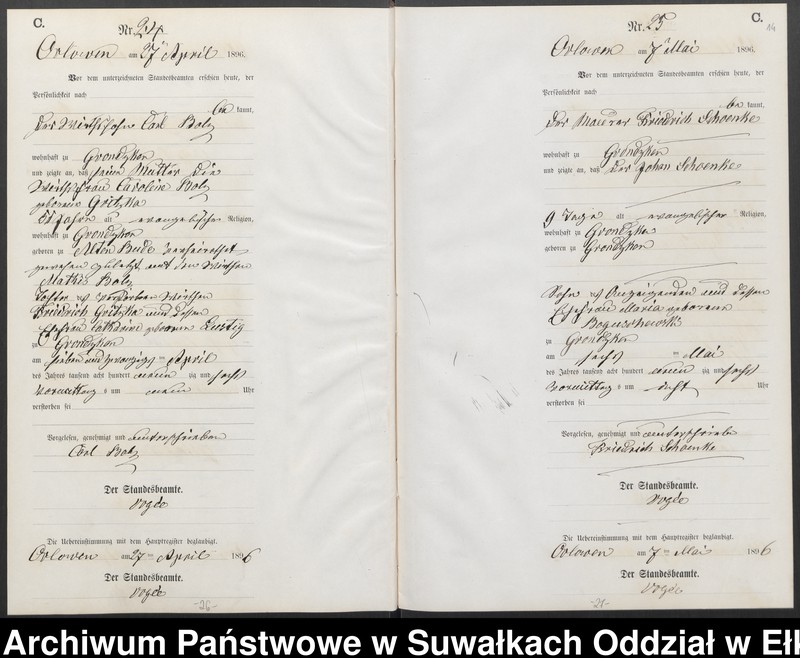 C.
Nr. 24
Orlowen am 27ten April 1896.
Vor dem unterzeichneten Standesbeamten erschien heute, der
Persönlichkeit nach
be kannt,
der Wirthssohn Carl Balz
wohnhaft zu Grondzken
und zeigte an, daß seine Mutter die
Wirthsfrau Caroline Balz
geborene Gritzka
Jahre alt evangelischer Religion,
wohnhaft zu Grondzken
geboren zu Alten Bude verheirathet
gewesen zuletzt mit dem Wirthen
Mathes Balz
Tochter des verstorbenen Wirthen
Friedrich Gritzka und dessen
Ehefrau Catharine geborenen Lustig
zu Grondzken
am sieben und zwanzigsten April
des Jahres tausend acht hundert neun zig und sechs
Vormittag s um neun Uhr
verstorben sei
Vorgelesen, genehmigt und unterschrieben
Carl Balz
Der Standesbeamte.
Vogée
Die Uebereinstimmung mit dem Hauptregister beglaubigt.
Orlowen am 27ten April 1896
Der Standesbeamte.
Vogée
-26-
C.
14
Nr. 25
Orlowen am 7ten Mai 1896.
Vor dem unterzeichneten Standesbeamten erschien heute, der
Persönlichkeit nach
be kannt,
der Maurer Friedrich Schoenke
wohnhaft zu Grondzken
und zeigte an, daß der Johan Schoenke
9 Tage alt evangelischer Religion,
wohnhaft zu Grondzken
geboren zu Grondzken
Sohn des Anzeigenden und dessen
Ehefrau Maria geborene
Boguschewski
zu Grondzken
am sechsten Mai
des Jahres tausend acht hundert neun zig und sechs
Vormittag s um acht Uhr
verstorben sei
Vorgelesen, genehmigt und unterschrieben
Friedrich Schoenke
Der Standesbeamte.
Vogée
Die Uebereinstimmung mit dem Hauptregister beglaubigt.
Orlowen am 7ten Mai 1896
Der Standesbeamte.
Vogée
-21-
Archiwum Państwowe w Suwałkach Oddział w Ełk